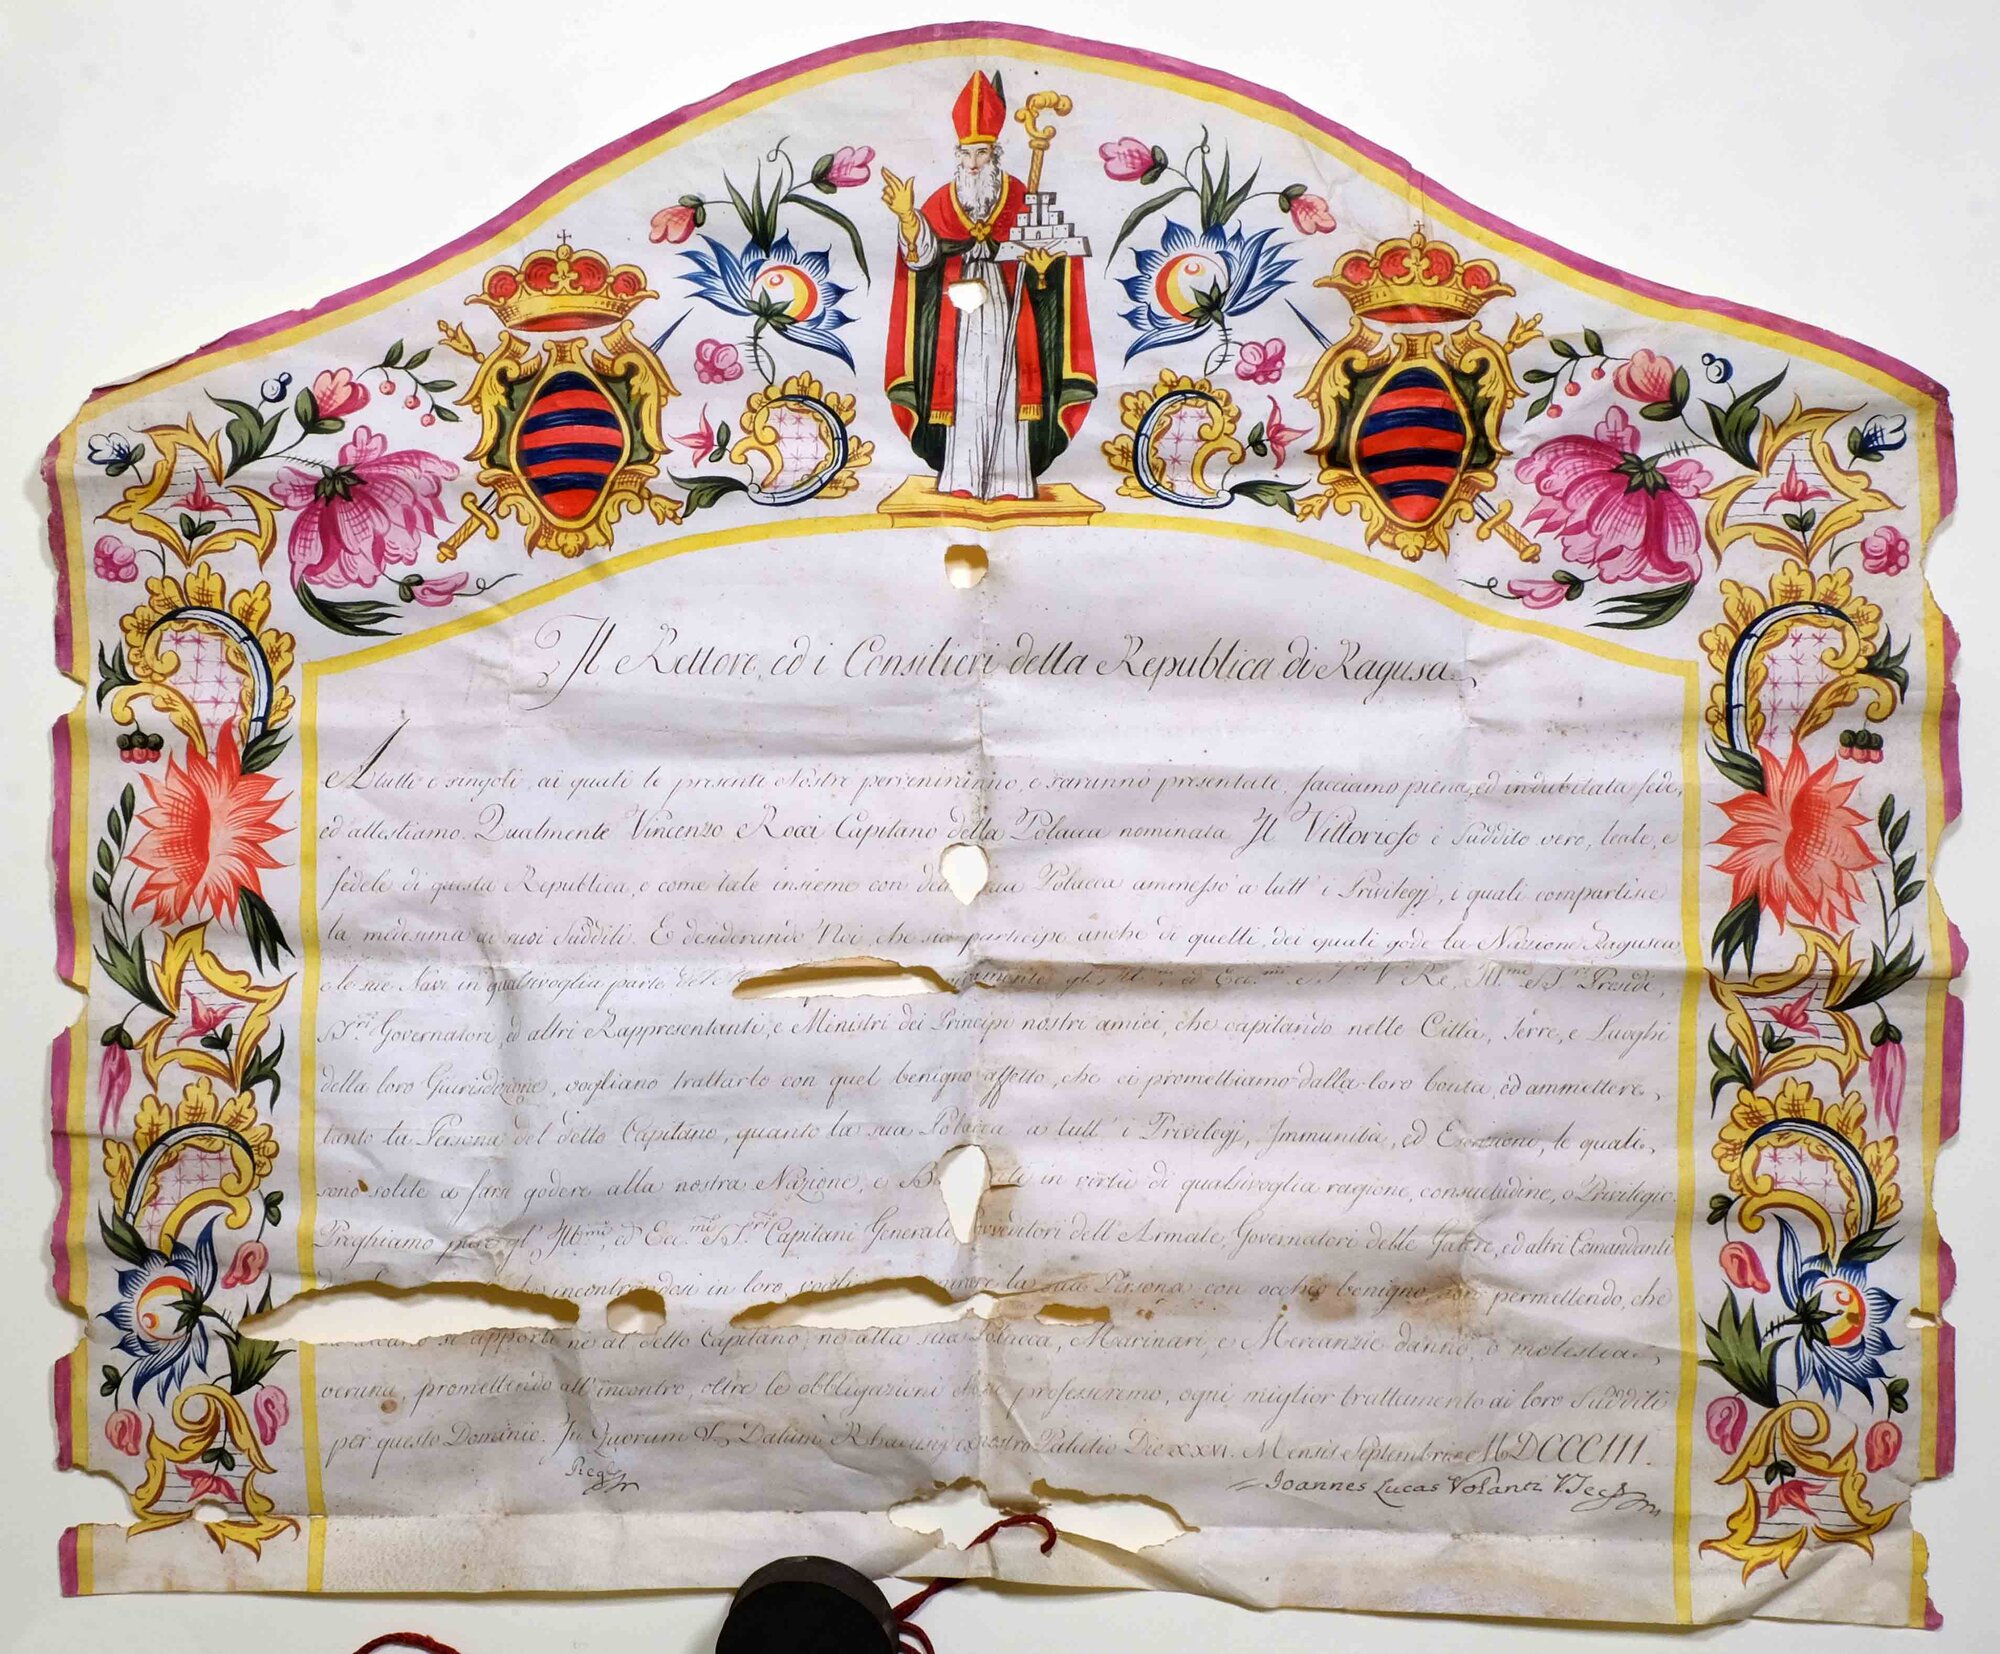 Il Rettore, ed i Consilieri della Republica di Ragusa.
A tutti e singoli, ai quali le presenti Nostre perveniranno, e saranno presentate, facciamo piena, ed indubitata fede,
ed attestiamo. Qualmente Vincenzo Rocci Capitano della Polacca nominata Il Vittorioso è Suddito vero, leale, e
fedele di questa Republica, e come tale insieme con Polacca ammesso a tutt' i Privilegj, i quali compartisce
la medesima ai suoi Sudditi. E desiderando Noi, che sia partecipe anche di quelli, dei quali gode la Nazione Ragusea
e le sue Navi in qualsivoglia parte del gl' Ill.mi, ed Ecc.mi S.ri V. Re, Ill.mi S.ri Presidi,
S.ri Governatori, ed altri Rappresentanti, e Ministri dei Principi nostri amici, che capitando nelle Città, Terre, e Luoghi
della loro Giurisdizione, vogliano trattarlo con quel benigno affetto, che ci promettiamo dalla loro bontà, ed ammettere,
tanto la Persona del detto Capitano, quanto la sua Polacca a tutt' i Privilegj, Immunità, ed Esenzioni, le quali,
sono solite a farsi godere alla nostra Nazione, e in virtù di qualsivoglia ragione, consuetudine, o Privilegio.
Preghiamo pure gl' Ill.mi, ed Ecc.mi S.ri Capitani Generali, Provveditori dell' Armate, Governatori delle Galere, ed altri Comandanti
incontrandosi in loro, la sua Persona con occhio benigno, non permettendo, che
si apporti nè al detto Capitano, nè alla sua Polacca, Marinari, e Mercanzie danno, o molestia,
veruna, promettendo all' incontro, oltre le obbligazioni che professeremo, ogni miglior trattamento ai loro Sudditi
per questo Dominio. In Quorum &. Datum Rhacusij ex nostro Palatio Die XXVI. Mensis Septembris MDCCCIII.
Joannes Lucas Volanti